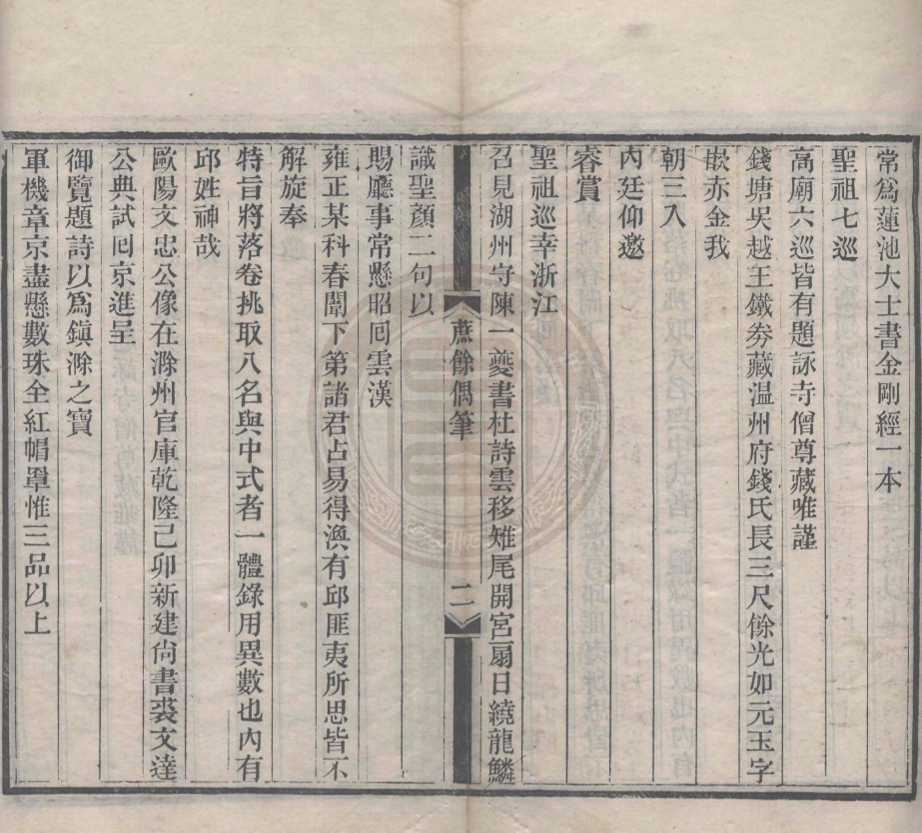 常爲蓮池大士書金剛經一本
聖祖七巡
高廟六巡皆有題詠寺僧尊藏唯謹
錢塘吳越王鐵券藏温州府錢氏長三尺餘光如元玉字
嵌亦金我
朝三入
内廷仰邀
睿賞
聖祖巡幸浙江
召見湖州守陳一夔書杜詩雲移雉尾開宮扇日繞龍鱗
蔗餘偶筆
二
識聖顏二句以
賜廳事常懸昭回雲漢
雍正某科春闈下第諸君占易得渙有邱匪夷所思皆不
解旋奉
特旨將落卷挑取八名與中式者一體錄用異數也内有
邱姓神哉
歐陽文忠公像在滁州官庫乾隆己卯新建尙書裘文達
公典試回京進呈
御覽題詩以爲鎭滁之寶
軍機章京盡懸數珠全紅帽罩惟三品以上